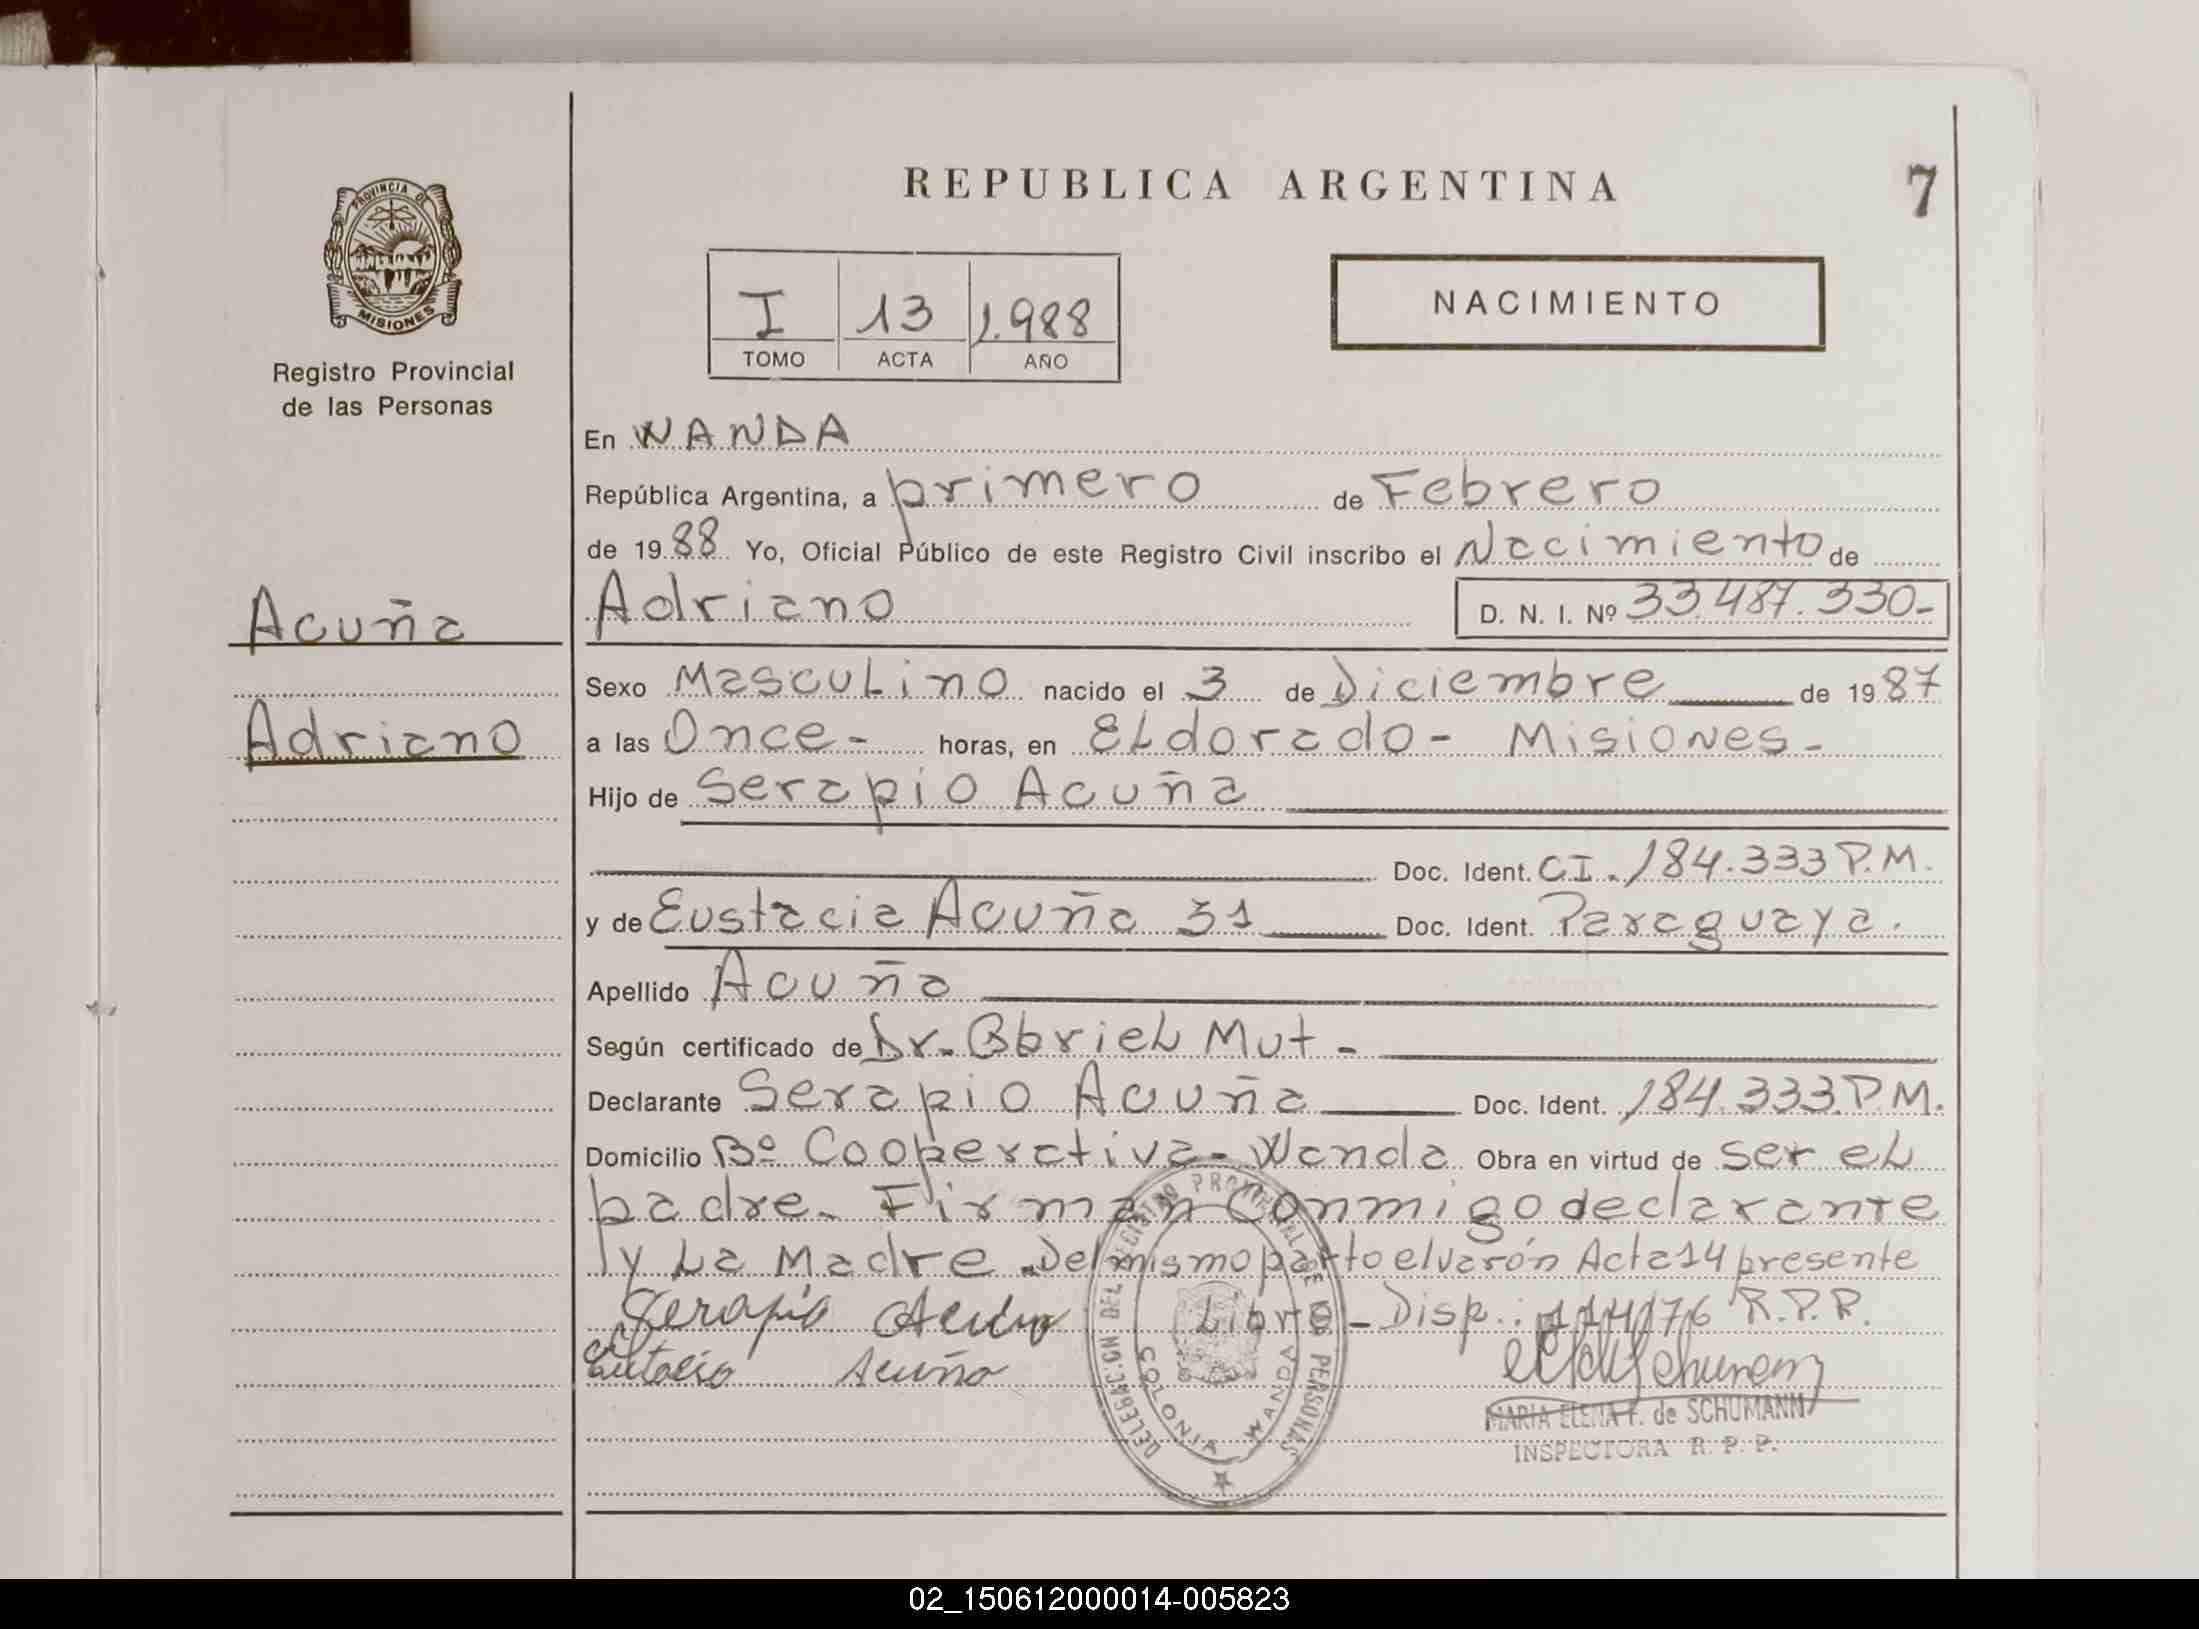 PROVINCIA DE
MISIONES
Registro Provincial
de las Personas
Acuña
Adriano
REPUBLICA ARGENTINA
7
I 13 1.988
TOMO ACTA AÑO
NACIMIENTO
En WANDA
República Argentina, a primero de Febrero
de 1988 Yo, Oficial Público de este Registro Civil inscribo el Nacimiento de
Adriano D. N. I. Nº 33.487.330-
Sexo MascuLino nacido el 3 de Diciembre de 1987
a las Once- horas, en ELdorado- Misiones-
Hijo de Serapio Acuña
Doc. Ident. CI. 184.333 P.M.
y de Eustacia Acuña 31 Doc. Ident. Paraguaya.
Apellido Acuña
Según certificado de Dr. GbrieL Mut-
Declarante Serapio Acuña Doc. Ident. 184.333.P.M.
Domicilio Bº Cooperativa-Wanda Obra en virtud de ser eL
padre. Firman conmigo declarante
y La Madre. Del mismo parto el varón Acta 14 presente
Serapio Acuña Libro-Disp.: 114/76 R.P.P.
Acuña
MARIA ELENA F. de SCHUMANN
INSPECTORA R. P. P.
DELEGAC:ON DEL REGISTRO PROVINCIAL DE LAS PERSONAS
COLONIA WANDA
02_150612000014-005823